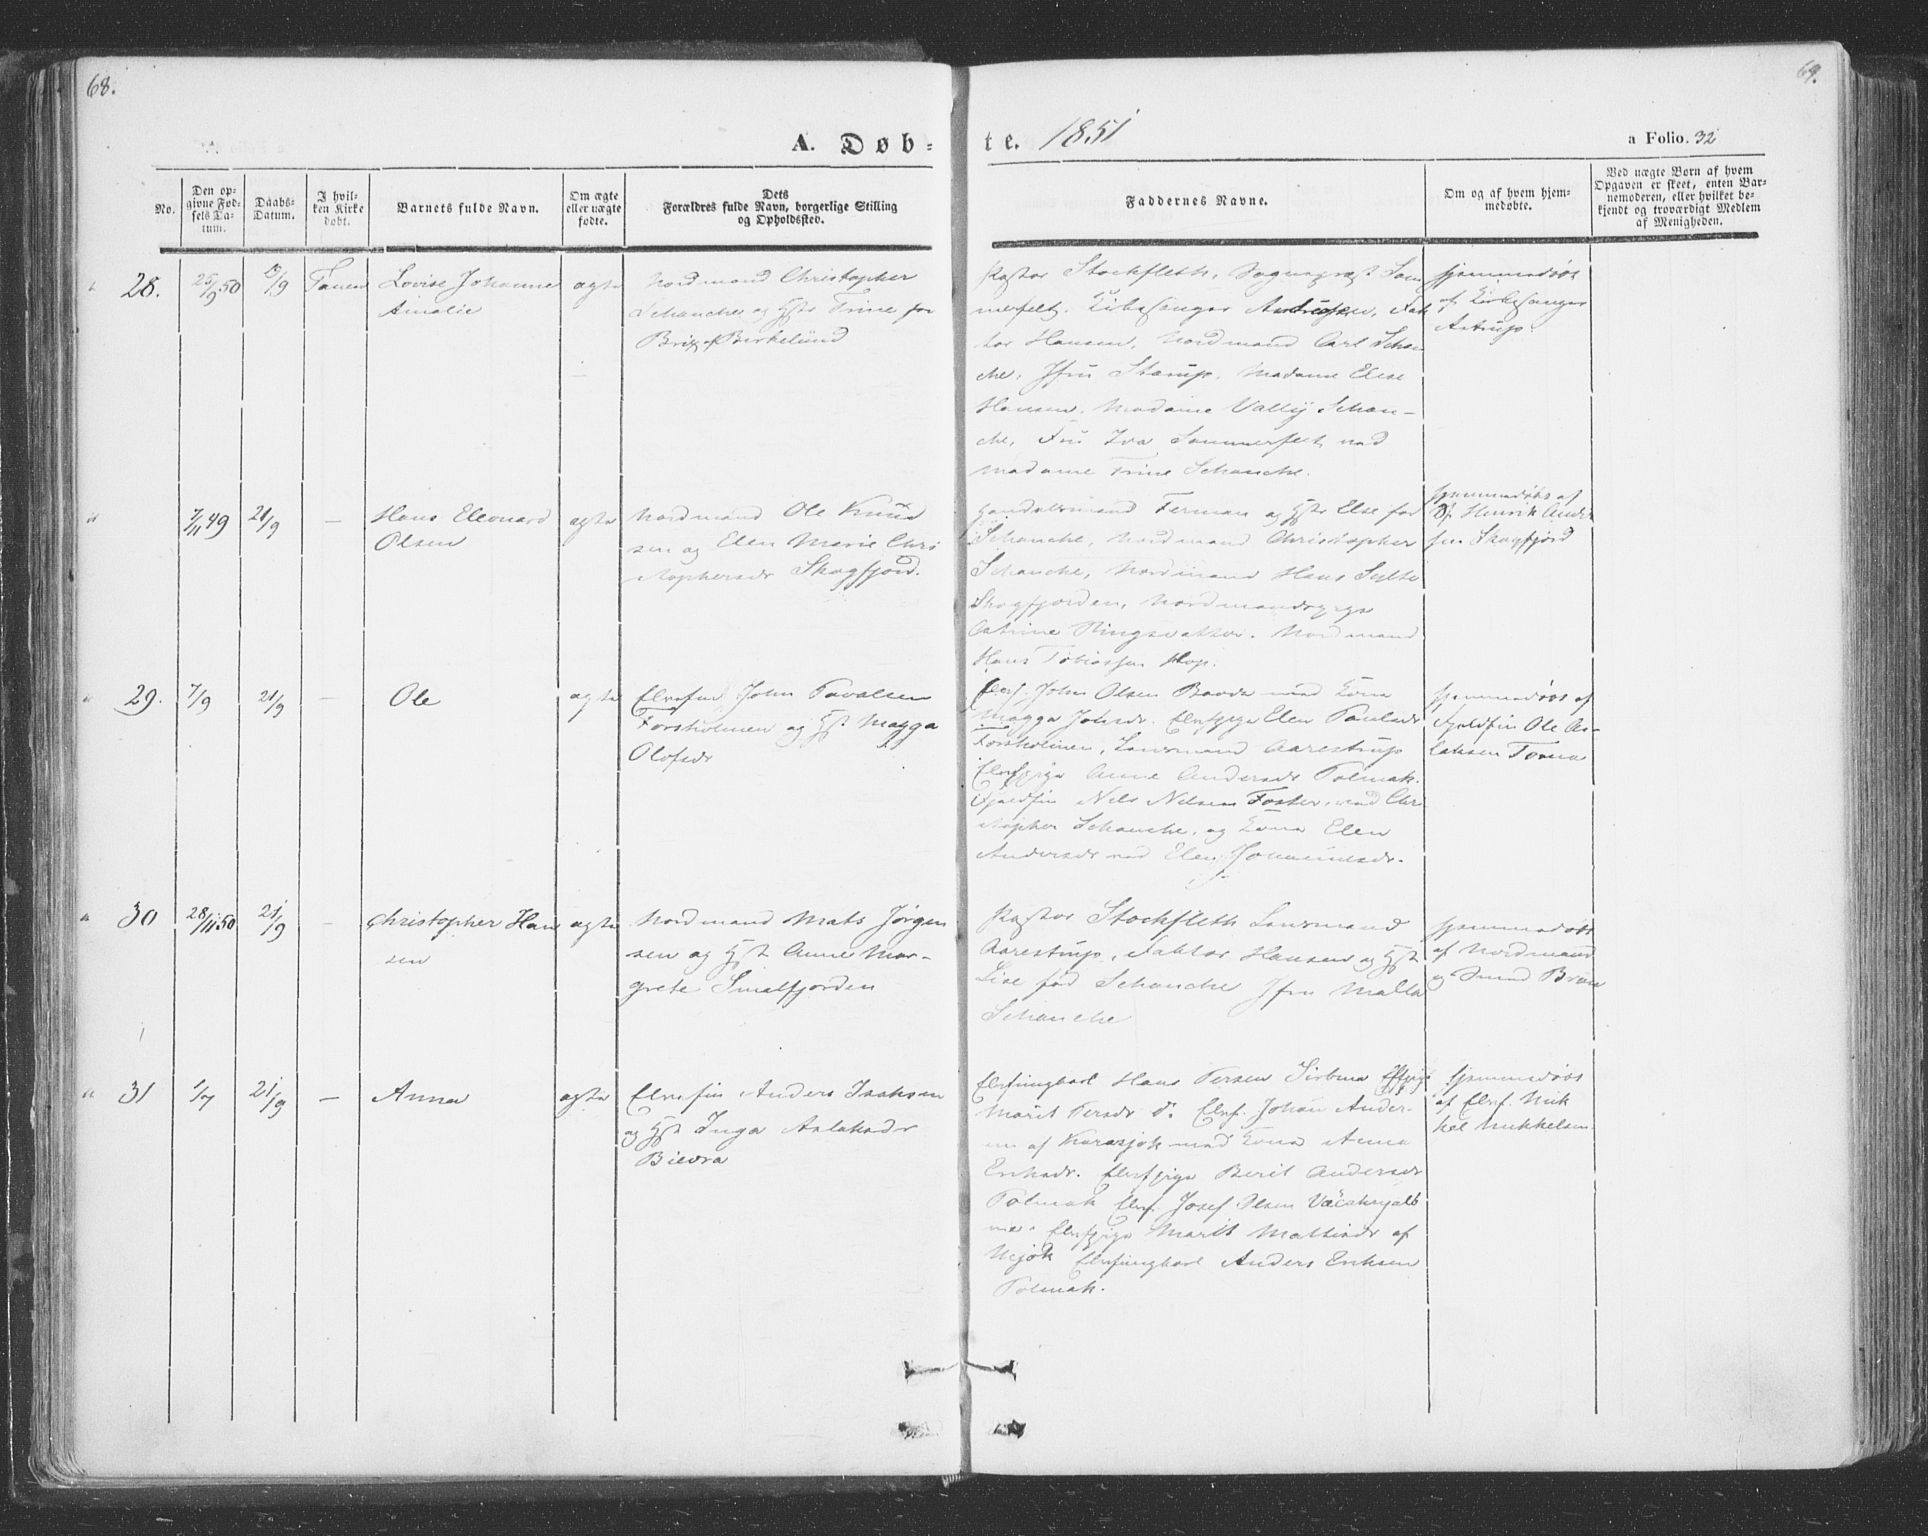 68.
69.
A. Døb-
te. 1851
a Folio. 32
No.
Den op-
givne Fød-
sels Da-
tum.
Daabs-
Datum.
I hvil-
ken Kirke
døbt.
Barnets fulde Navn.
Om ægte
eller uægte
fødte.
Dets
Forældres fulde Navn, borgerlige Stilling
og Opholdssted.
Faddernes Navne.
Om og af hvem hjem-
medøbte.
Ved uægte Born af hvem
Opgaven er skeet, enten Bar-
nemoderen, eller hvilket be-
kjendt og troværdigt Medlem
af Menigheden.
28.
25/9 50
/9
Tanen
Lovise Johanne
Amalie
ægte
Nordmand Christopher
Schanche og Hst Trine før
Brix af Birkelund
Pastor Stockfleth, Sognepræst Som
merfelt. Kirkesanger
tor Hansen, Nordmand Carl Schan
che, Jfru Starup. Madame Elise
Hansen. Madame Vally Schan-
che, Fru Sommerfelt med
Madame Trine Schanche.
Hjemmedøbt
af Kirkesanger
Astrup.
7/11 49
21/9
—
Hans Eleonard
Olsen
ægte
Nordmand Ole Knud
sen og Elen Marie Chri
stophersdr Skogfjord.
Handelsmand Ferman og Hst Else før
Schanche, Nordmand Christopher
Schanche, Nordmand Hans
Skogfjorden, Nordmandspige
Catrine Ringsvatter. Nordmand
Hans Tobiassen Hop.
Hjemmedøbt af
Henrik Ander
sen Skogfjord
29.
7/9
21/9
—
Ole
ægte
Elvefin John Pavalsen
Forsholmen og Hst Magga
Olofsdr
Elvf. John Olsen med Kona
Magga Johnsdr. Elvfpige Elen Paulsdr
Forsholmen, Lensmand Aarestrup
Elvfpige Anne Andersdr Polmak.
Fjeldfin Nels Nilsen med Chri
stopher Schanche, og Kona Elen
Andersdr med Elen Johannesdr.
Hjemmedøbt af
Fjeldfin Ole As-
laksen
30
28/11 50
21/9
—
Christopher Han
sen
ægte
Nordmand Mats Jørgen
sen og Hst Anne Mar-
grete Smalfjorden
Pastor Stockfleth Lensmand
Aarestrup, Faktor Hansen og Hst
Lise fød Schanche Jfru Malla
Schanche
Hjemmedøbt
af Nordmand
31
1/7
21/9
—
Anna
ægte
Elvefin Anders Isaksen
og Hst Inga Aslaksdr
Bildra
Elvfinngkarl Hans Persen Sirbma
Marit Persdr d. Elvf. Johan Ander-
sen af Karasjok med Kona Anna
Eriksdr. Elvfpige Berit Andersdr
Polmak Elvf. Josef Olsen
Elvfpige Marit Mattisdr af
Elvfinngkarl Anders Eriksen
Polmak.
Hjemmedøbt
af Elvf. Mik
kel Mikkelsen